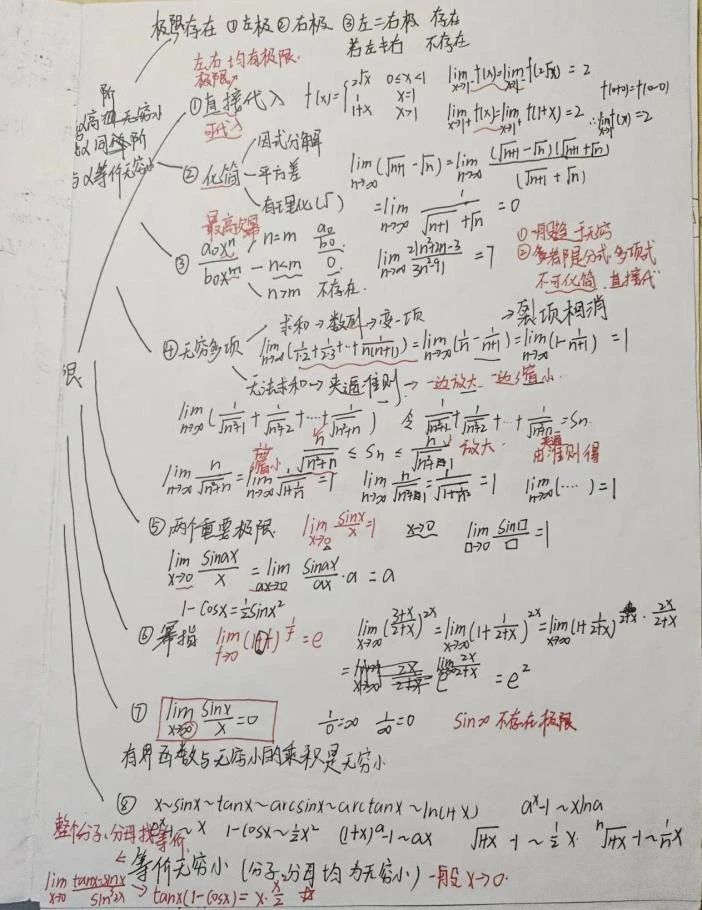 极限存在 ①左极 ②右极 ③左=右极 存在
若左≠右 不存在
左右均有极限
极限
阶
高 无穷小
同 阶
与α等价无穷小
限
①直接代入
可代入
f(x)={2√x 0≤x<1
1 x=1
1+x x>1
lim x→1⁻ f(x)=lim x→1⁻ f(2√x)=2
lim x→1⁺ f(x)=lim x→1⁺ f(1+x)=2
f(0+0)=f(0-0)
∴lim x→1 f(x)=2
②化简
因式分解
平方差
有理化(√)
lim n→∞ (√n+1 -√n)=lim n→∞ (√n+1 -√n)(√n+1 +√n) / (√n+1 +√n)
=lim n→∞ 1/(√n+1 +√n) =0
最高次幂
③ a₀xⁿ/b₀xᵐ
n=m a₀/b₀
n<m 0
n>m 不存在
=7
① 趋于无穷
分式 多项式
不可化简 直接代
④无穷多项
求和→数列→变一项
→裂项相消
lim n→∞ (1/1·2+1/2·3+…+1/n(n+1))=lim n→∞ (1/n-1/n+1)=lim n→∞ (1-1/n+1)=1
无法求和→夹逼准则→一边放大 一边缩小
lim n→∞ (1/√n²+1 + 1/√n²+2 +…+ 1/√n²+n) 令 1/√n²+1 + 1/√n²+2 +…+ 1/√n²+n =Sn
缩小 n/√n²+n ≤ Sn ≤ n/√n²+1 放大
由 准则得
lim n→∞ n/√n²+n =lim n→∞ 1/√1+1/n =1
lim n→∞ n/√n²+1 = =1
lim n→∞ (…)=1
⑤两个重要极限
lim x→0 sinx/x=1
x→0
lim □→0 sin□/□=1
lim x→0 sinax/x =lim ax→0 sinax/ax ·a =a
1-cosx=½sinx²
⑥幂指
lim t→0 (1+t)^1/t =e
lim x→∞ (3+x/2+x)^2x =lim x→∞ (1+1/2+x)^2x =lim x→∞ (1+1/2+x)^2+x · 2x/2+x
= e^lim 2x/2+x =e²
⑦ lim x→∞ sinx/x=0
1/0=∞ 1/∞=0
sin∞ 不存在极限
有界函数与无穷小的乘积是无穷小
⑧ x~sinx~tanx~arcsinx~arctanx~ln(1+x) aˣ-1~xlna
整个分子、分母找等价
~x 1-cosx~½x² (1+x)ᵃ-1~ax √1+x -1~½x ⁿ√1+x -1~1/n x
等价无穷小(分子、分母均为无穷小)一般x→0.
lim x→0 tanx-sinx/sin³2x → tanx(1-cosx)=x·x/2 ☆